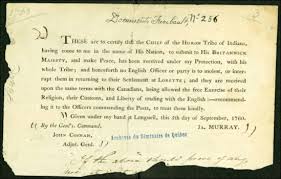 Nº 256
THESE are to certify that the CHIEF of the HURON Tribe of Indians,
having come to me in the name of His Nation, to submit to His BRITANNICK
MAJESTY, and make Peace, has been received under my Protection, with his
whole Tribe; and henceforth no English Officer or party is to molest, or inter-
rupt them in returning to their Settlement at LORETTE; and they are received
upon the same terms with the Canadians, being allowed the free Exercise of their
Religion, their Customs, and Liberty of trading with the English:—recommend-
ing it to the Officers commanding the Posts, to treat them kindly.
Given under my hand at Longueil, this 5th day of September, 1760.
By the Genl's. Command. JA. MURRAY.
JOHN COSNAN,
Adjut. Genl.
Archives du Séminaire de Québec
If the above should prove of any